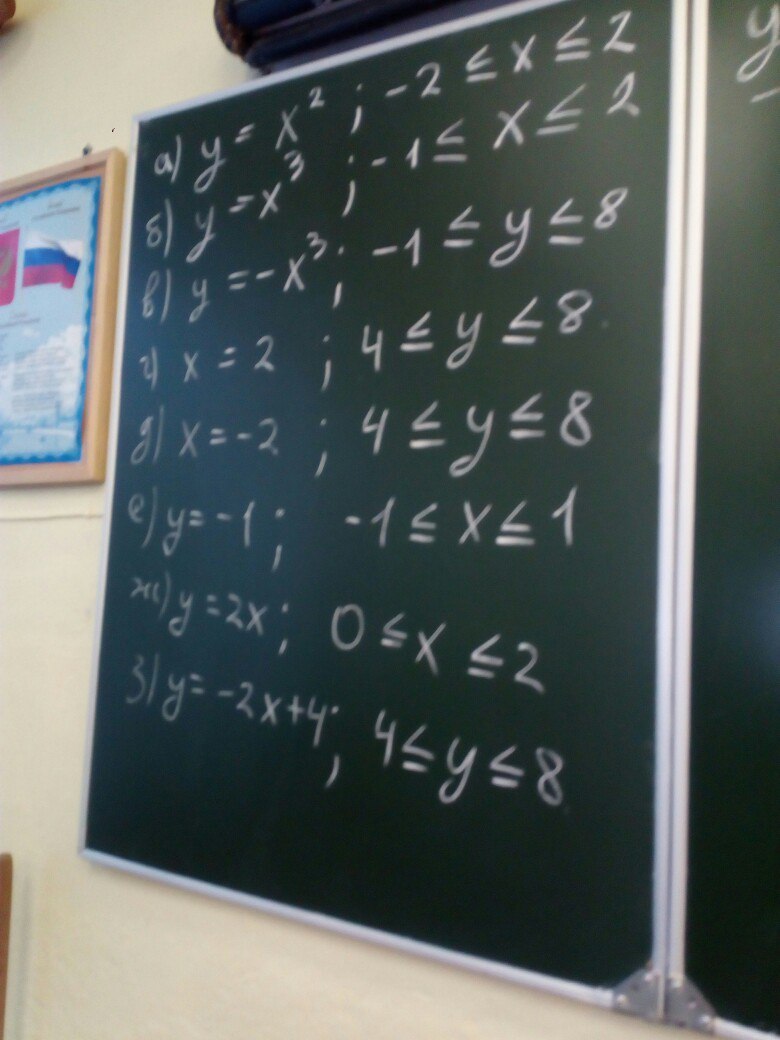 а) y = x² ; -2 ≤ x ≤ 2
б) y = x³ ; -1 ≤ x ≤ 2
в) y = -x³ ; -1 ≤ y ≤ 8
г) x = 2 ; 4 ≤ y ≤ 8
д) x = -2 ; 4 ≤ y ≤ 8
е) y = -1 ; -1 ≤ x ≤ 1
ж) y = 2x ; 0 ≤ x ≤ 2
з) y = -2x+4 ; 4 ≤ y ≤ 8
y